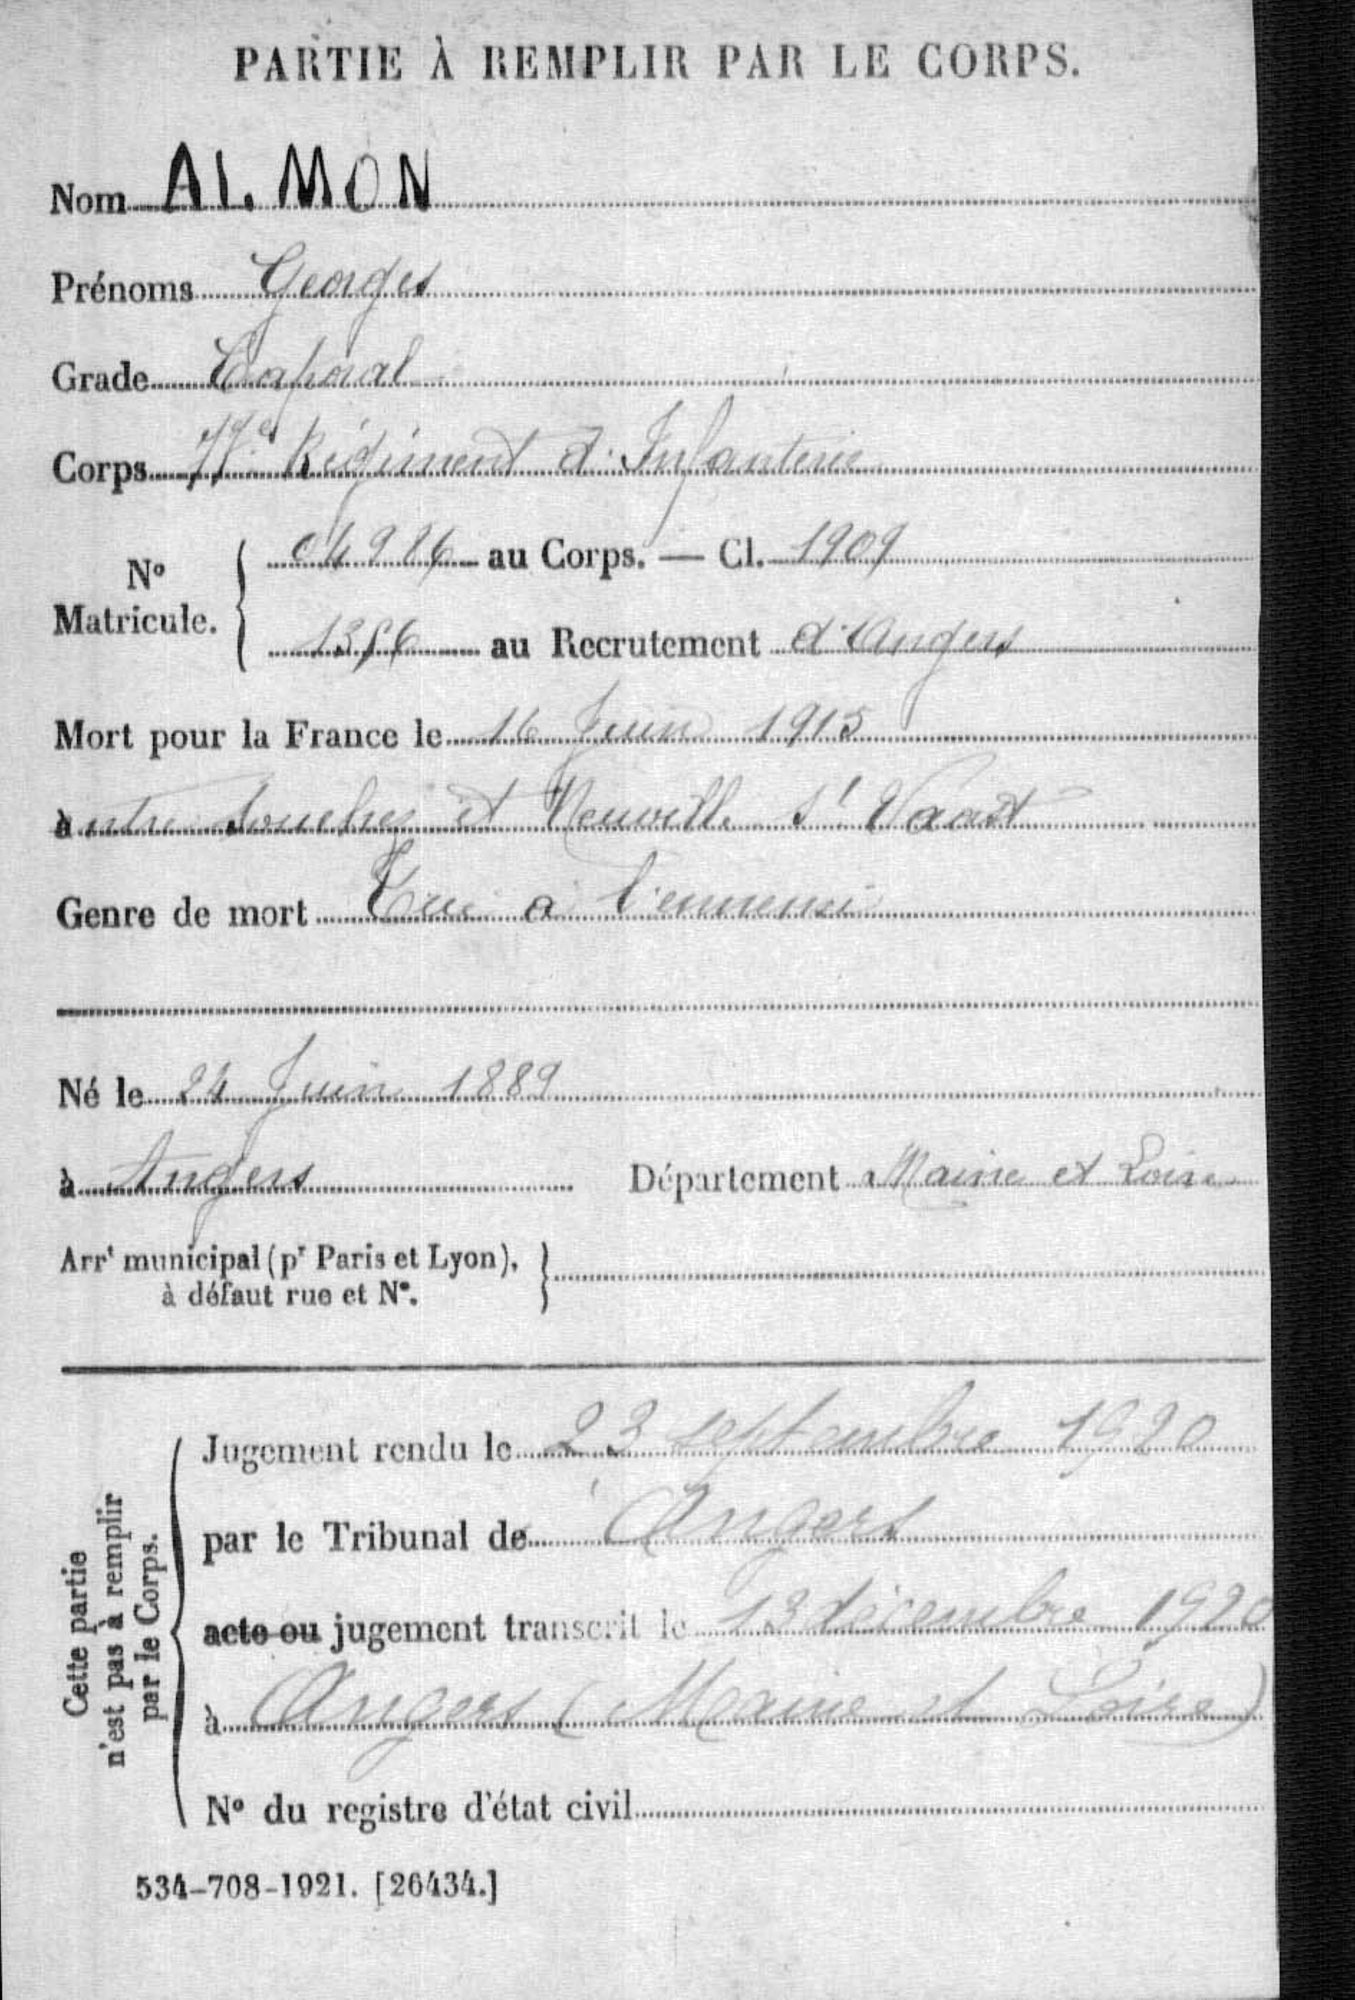 PARTIE À REMPLIR PAR LE CORPS.
Nom ALMON
Prénoms Georges
Grade Caporal
Corps 77e Régiment d'Infanterie
No Matricule. 04986 au Corps. — Cl. 1909
au Recrutement d'Angers
Mort pour la France le 16 Juin 1915
à entre Souchez et Neuville St Vaast
Genre de mort Tué à l'ennemi
Né le 24 Juin 1889
à Angers Département Maine et Loire
Arrt municipal (pr Paris et Lyon),
à défaut rue et No.
Cette partie
n'est pas à remplir
par le Corps.
Jugement rendu le 23 septembre 1920
par le Tribunal de Angers
acte ou jugement transcrit le 13 décembre 1920
à Angers (Maine et Loire)
No du registre d'état civil
534-708-1921. [26434.]